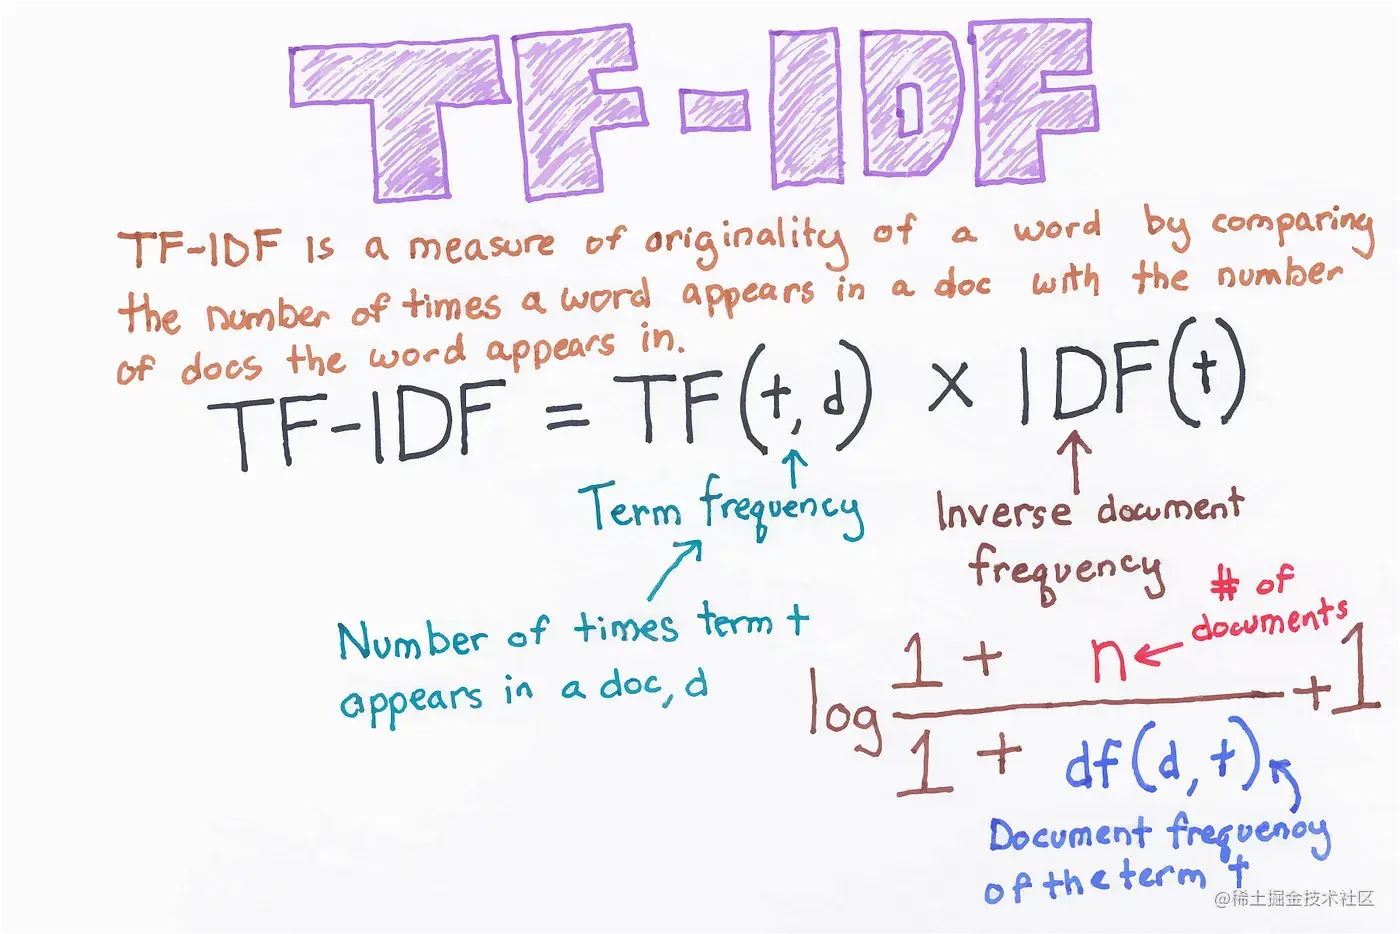 TF-IDF
TF-IDF is a measure of originality of a word by comparing
the number of times a word appears in a doc with the number
of docs the word appears in.
TF-IDF = TF(t, d) × IDF(t)
Term frequency
Inverse document
frequency
Number of times term t
appears in a doc, d
# of
documents
log 1 + n
1 + df(d, t)
+ 1
Document frequency
of the term t
@稀土掘金技术社区